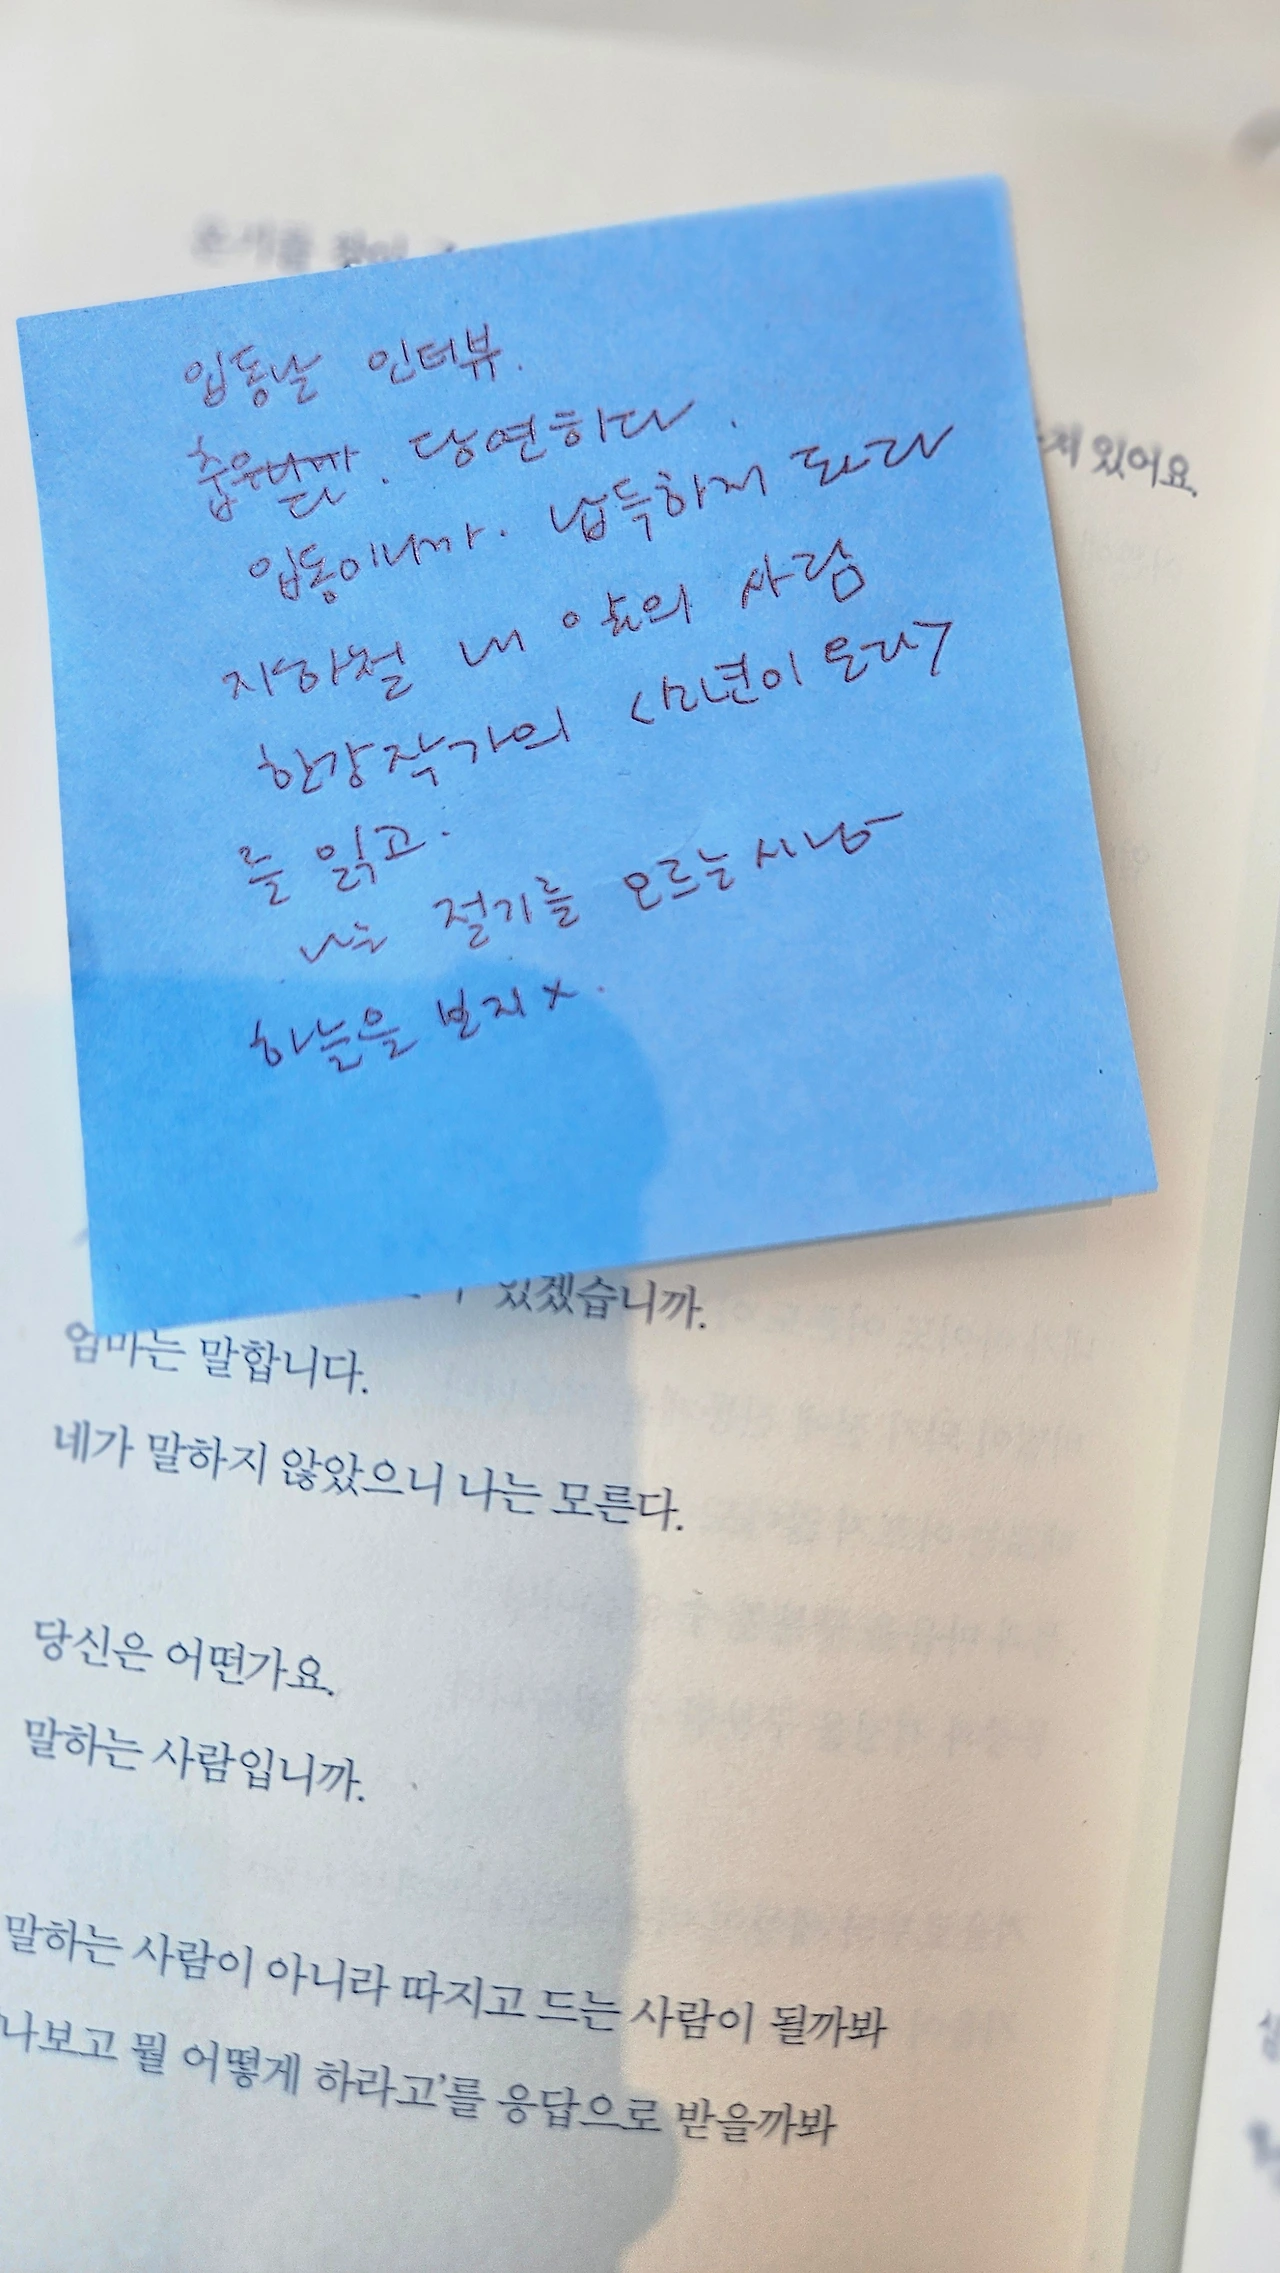 입동날 인터뷰.
춥다. 당연하다.
입동이니까. 납득하지 마라
지하철 내 앞의 사람
한강작가의 <소년이 온다>
를 읽고.
나는 절기를 모르는 시냥
하늘을 보지 X.
지 있어요.
있겠습니까.
엄마는 말합니다.
네가 말하지 않았으니 나는 모른다.
당신은 어떤가요.
말하는 사람입니까.
말하는 사람이 아니라 따지고 드는 사람이 될까봐
'나보고 뭘 어떻게 하라고'를 응답으로 받을까봐